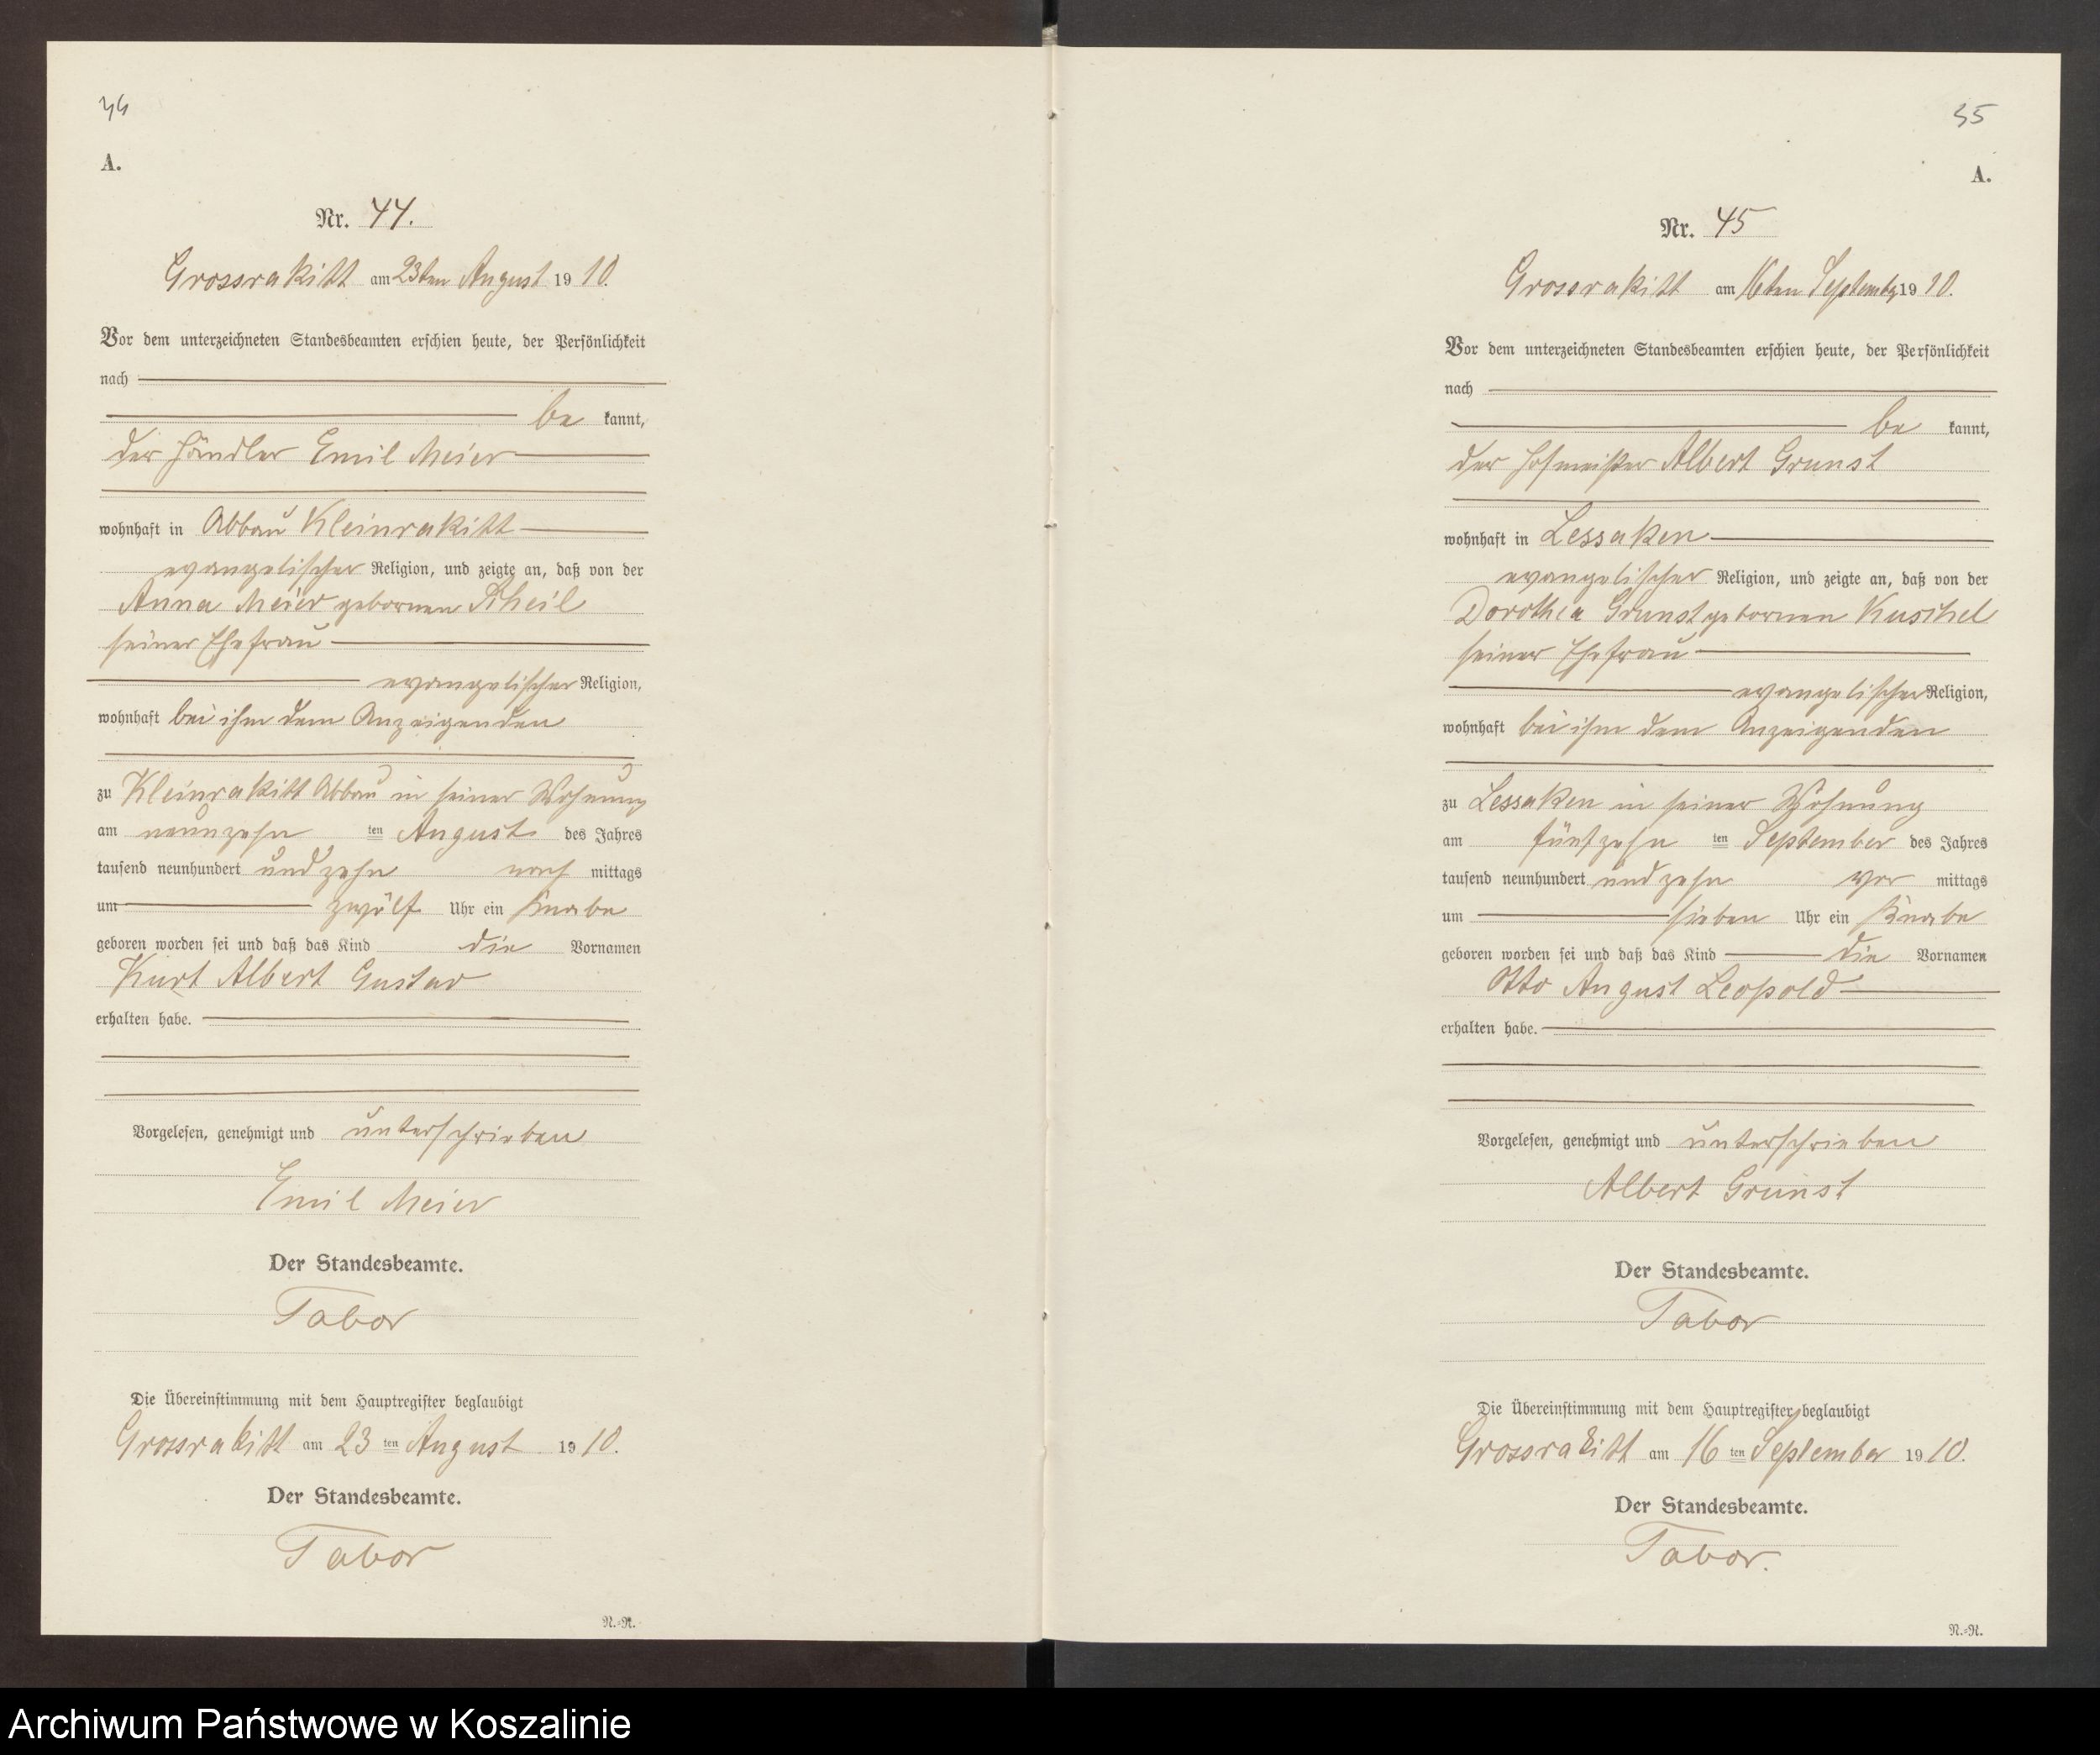 44
A.
Nr. 44.
Grossrakitt am 23ten August 1910.
Vor dem unterzeichneten Standesbeamten erschien heute, der Persönlichkeit
nach
be kannt,
der Händler Emil Meier
wohnhaft in Abbau Kleinrakitt
evangelischer Religion, und zeigte an, daß von der
Anna Meier gebornen Scheil
seiner Ehefrau
evangelischer Religion,
wohnhaft bei ihm dem Anzeigenden
zu Kleinrakitt Abbau in seiner Wohnung
am neunzehn ten August des Jahres
tausend neunhundert und zehn nach mittags
um zwölf Uhr ein Knabe
geboren worden sei und daß das Kind die Vornamen
Kurt Albert Gustav
erhalten habe.
Vorgelesen, genehmigt und unterschrieben
Emil Meier
Der Standesbeamte.
Tabor
Die Übereinstimmung mit dem Hauptregister beglaubigt
Grossrakitt am 23 ten August 1910.
Der Standesbeamte.
Tabor
N.=N.
A.
Nr. 45
Grossrakitt am 16ten September 1910.
Vor dem unterzeichneten Standesbeamten erschien heute, der Persönlichkeit
nach
be kannt,
der Hofmeister Albert Grunst
wohnhaft in Lessaken
evangelischer Religion, und zeigte an, daß von der
Dorothea Grunst gebornen Kuschel
seiner Ehefrau
evangelischer Religion,
wohnhaft bei ihm dem Anzeigenden
zu Lessaken in seiner Wohnung
am fünfzehn ten September des Jahres
tausend neunhundert und zehn vor mittags
um sieben Uhr ein Knabe
geboren worden sei und daß das Kind die Vornamen
Otto August Leopold
erhalten habe.
Vorgelesen, genehmigt und unterschrieben
Albert Grunst
Der Standesbeamte.
Tabor
Die Übereinstimmung mit dem Hauptregister beglaubigt
Grossrakitt am 16 ten September 1910.
Der Standesbeamte.
Tabor.
N.=N.
Archiwum Państwowe w Koszalinie